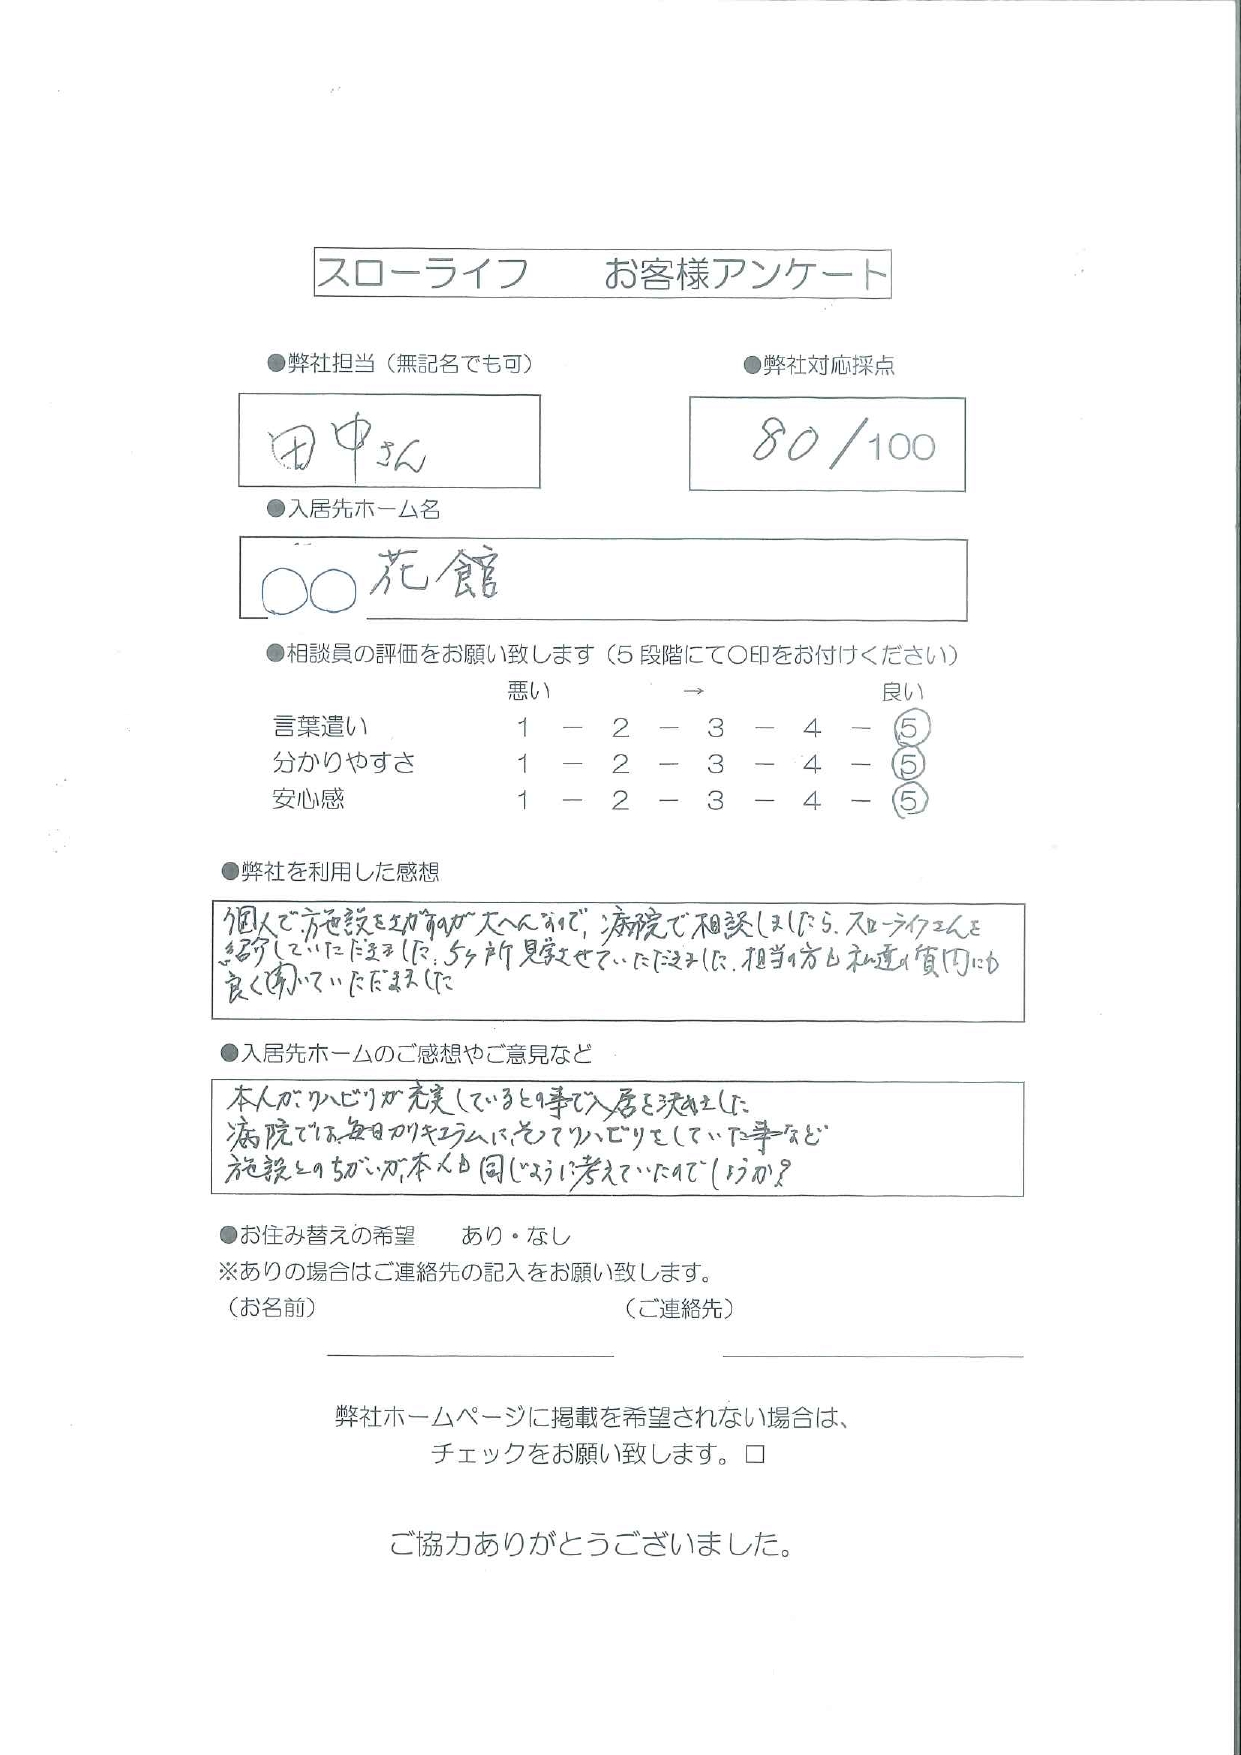 スローライフ　　お客様アンケート
●弊社担当（無記名でも可）　●弊社対応採点
田中さん　80/100
●入居先ホーム名
○○花館
●相談員の評価をお願い致します（5段階にて〇印をお付けください）
悪い　→　良い
言葉遣い　1 － 2 － 3 － 4 － 5
分かりやすさ　1 － 2 － 3 － 4 － 5
安心感　1 － 2 － 3 － 4 － 5
●弊社を利用した感想
個人で施設をさがすのが大へんなので、病院で相談しましたら、スローライフさんを
紹介していただきました。5ヶ所見学させていただきました。担当の方も私達の質問にも
良く聞いていただきました
●入居先ホームのご感想やご意見など
本人が、リハビリが充実しているとの事で入居を決めました
病院では、毎日カリキュラムに、そってリハビリをしていた事など
施設とのちがいが、本人も同じように考えていたのでしょうか？
●お住み替えの希望　　あり・なし
※ありの場合はご連絡先の記入をお願い致します。
（お名前）　（ご連絡先）
弊社ホームページに掲載を希望されない場合は、
チェックをお願い致します。□
ご協力ありがとうございました。